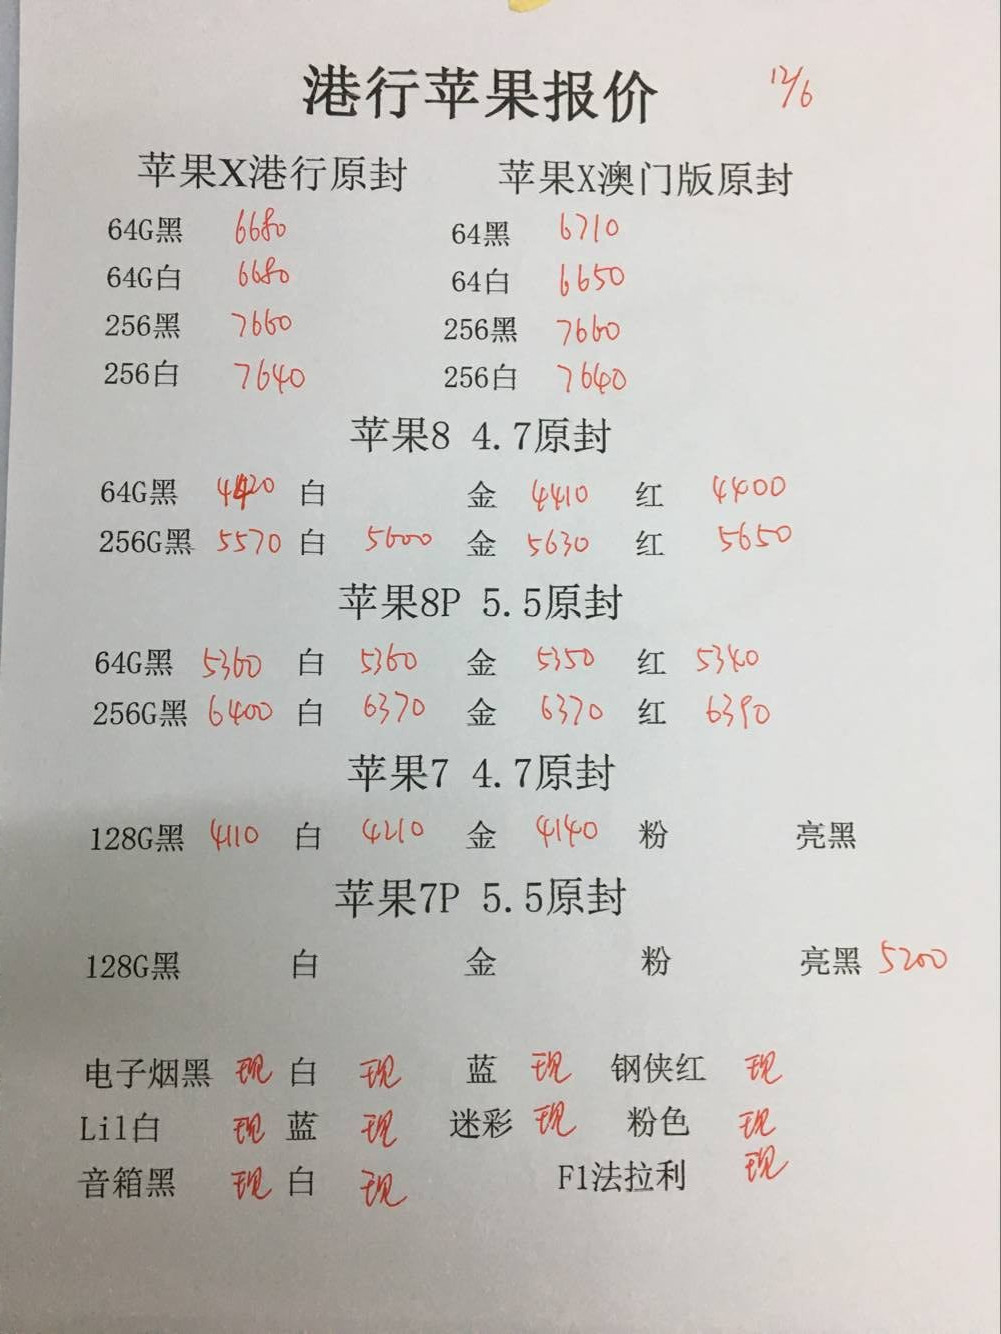 港行苹果报价 12/6
苹果X港行原封 苹果X澳门版原封
64G黑 6680 64黑 6710
64G白 6680 64白 6650
256黑 7660 256黑 7660
256白 7640 256白 7640
苹果8 4.7原封
64G黑 4420 白 金 4410 红 4400
256G黑 5570 白 5600 金 5630 红 5650
苹果8P 5.5原封
64G黑 5360 白 5360 金 5350 红 5340
256G黑 6400 白 6370 金 6370 红 6390
苹果7 4.7原封
128G黑 4110 白 4210 金 4140 粉 亮黑
苹果7P 5.5原封
128G黑 白 金 粉 亮黑 5200
电子烟黑 现 白 现 蓝 现 钢侠红 现
Lil白 现 蓝 现 迷彩 现 粉色 现
音箱黑 现 白 现 F1法拉利 现